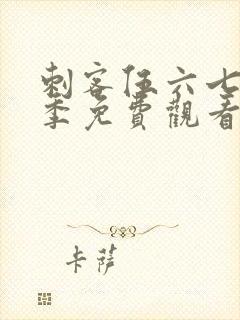 刺客伍六七
季免費觀看
卡薩